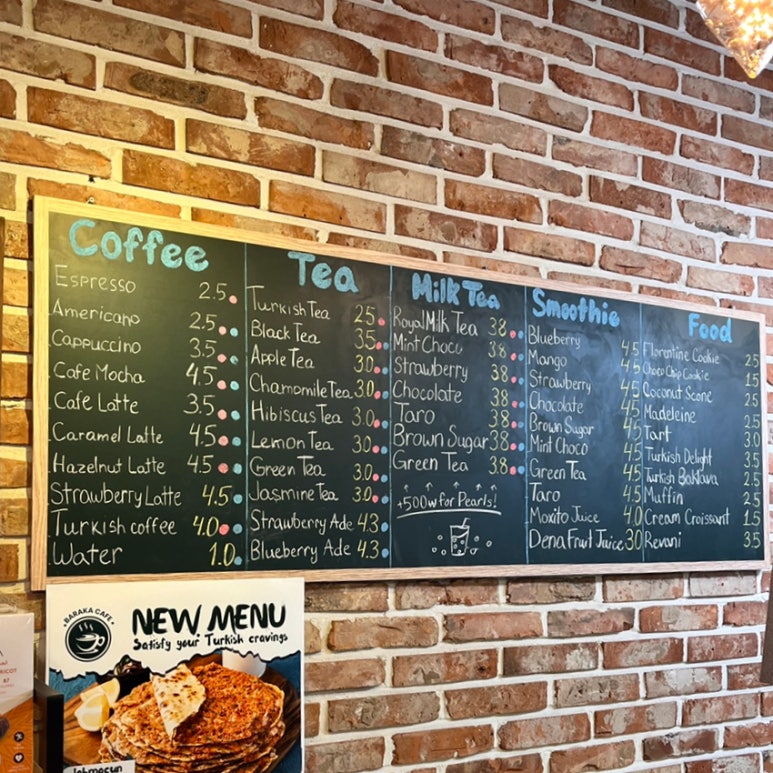 Coffee
Espresso 2.5
Americano 2.5
Cappuccino 3.5
Cafe Mocha 4.5
Cafe Latte 3.5
Caramel Latte 4.5
Hazelnut Latte 4.5
Strawberry Latte 4.5
Turkish coffee 4.0
Water 1.0
Tea
Turkish Tea 2.5
Black Tea 3.5
Apple Tea 3.0
Chamomile Tea 3.0
Hibiscus Tea 3.0
Lemon Tea 3.0
Green Tea 3.0
Jasmine Tea 3.0
Strawberry Ade 4.3
Blueberry Ade 4.3
Milk Tea
Royal Milk Tea 3.8
Mint Choco 3.8
Strawberry 3.8
Chocolate 3.8
Taro 3.8
Brown Sugar 3.8
Green Tea 3.8
+500w for Pearls!
Smoothie
Blueberry 4.5
Mango 4.5
Strawberry 4.5
Chocolate 4.5
Brown Sugar 4.5
Mint Choco 4.5
Green Tea 4.5
Taro 4.5
Moxito Juice 4.0
Dena Fruit Juice 3.0
Food
Florentine Cookie 2.5
Choco Chip Cookie 1.5
Coconut Scone 2.5
Madeleine 2.5
Tart 3.0
Turkish Delight 3.5
Turkish Baklava 2.5
Muffin 2.5
Cream Croissant 1.5
Revani 3.5
BARAKA CAFE
NEW MENU
Satisfy your Turkish cravings
lahmacun